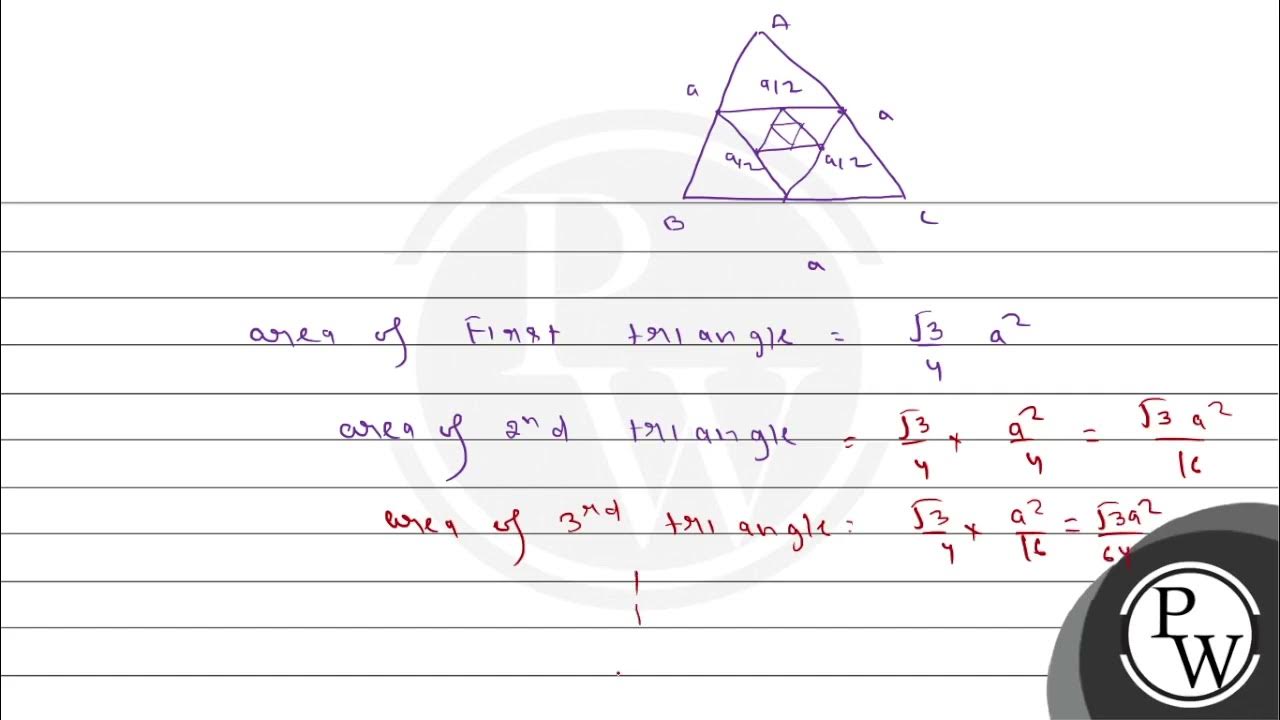 A
a a/2 a
a/2 a/2
B C
a
area of First triangle = √3/4 a²
area of 2nd triangle = √3/4 × a²/4 = √3 a²/16
area of 3rd triangle = √3/4 × a²/16 = √3a²/64
P
W
P
W